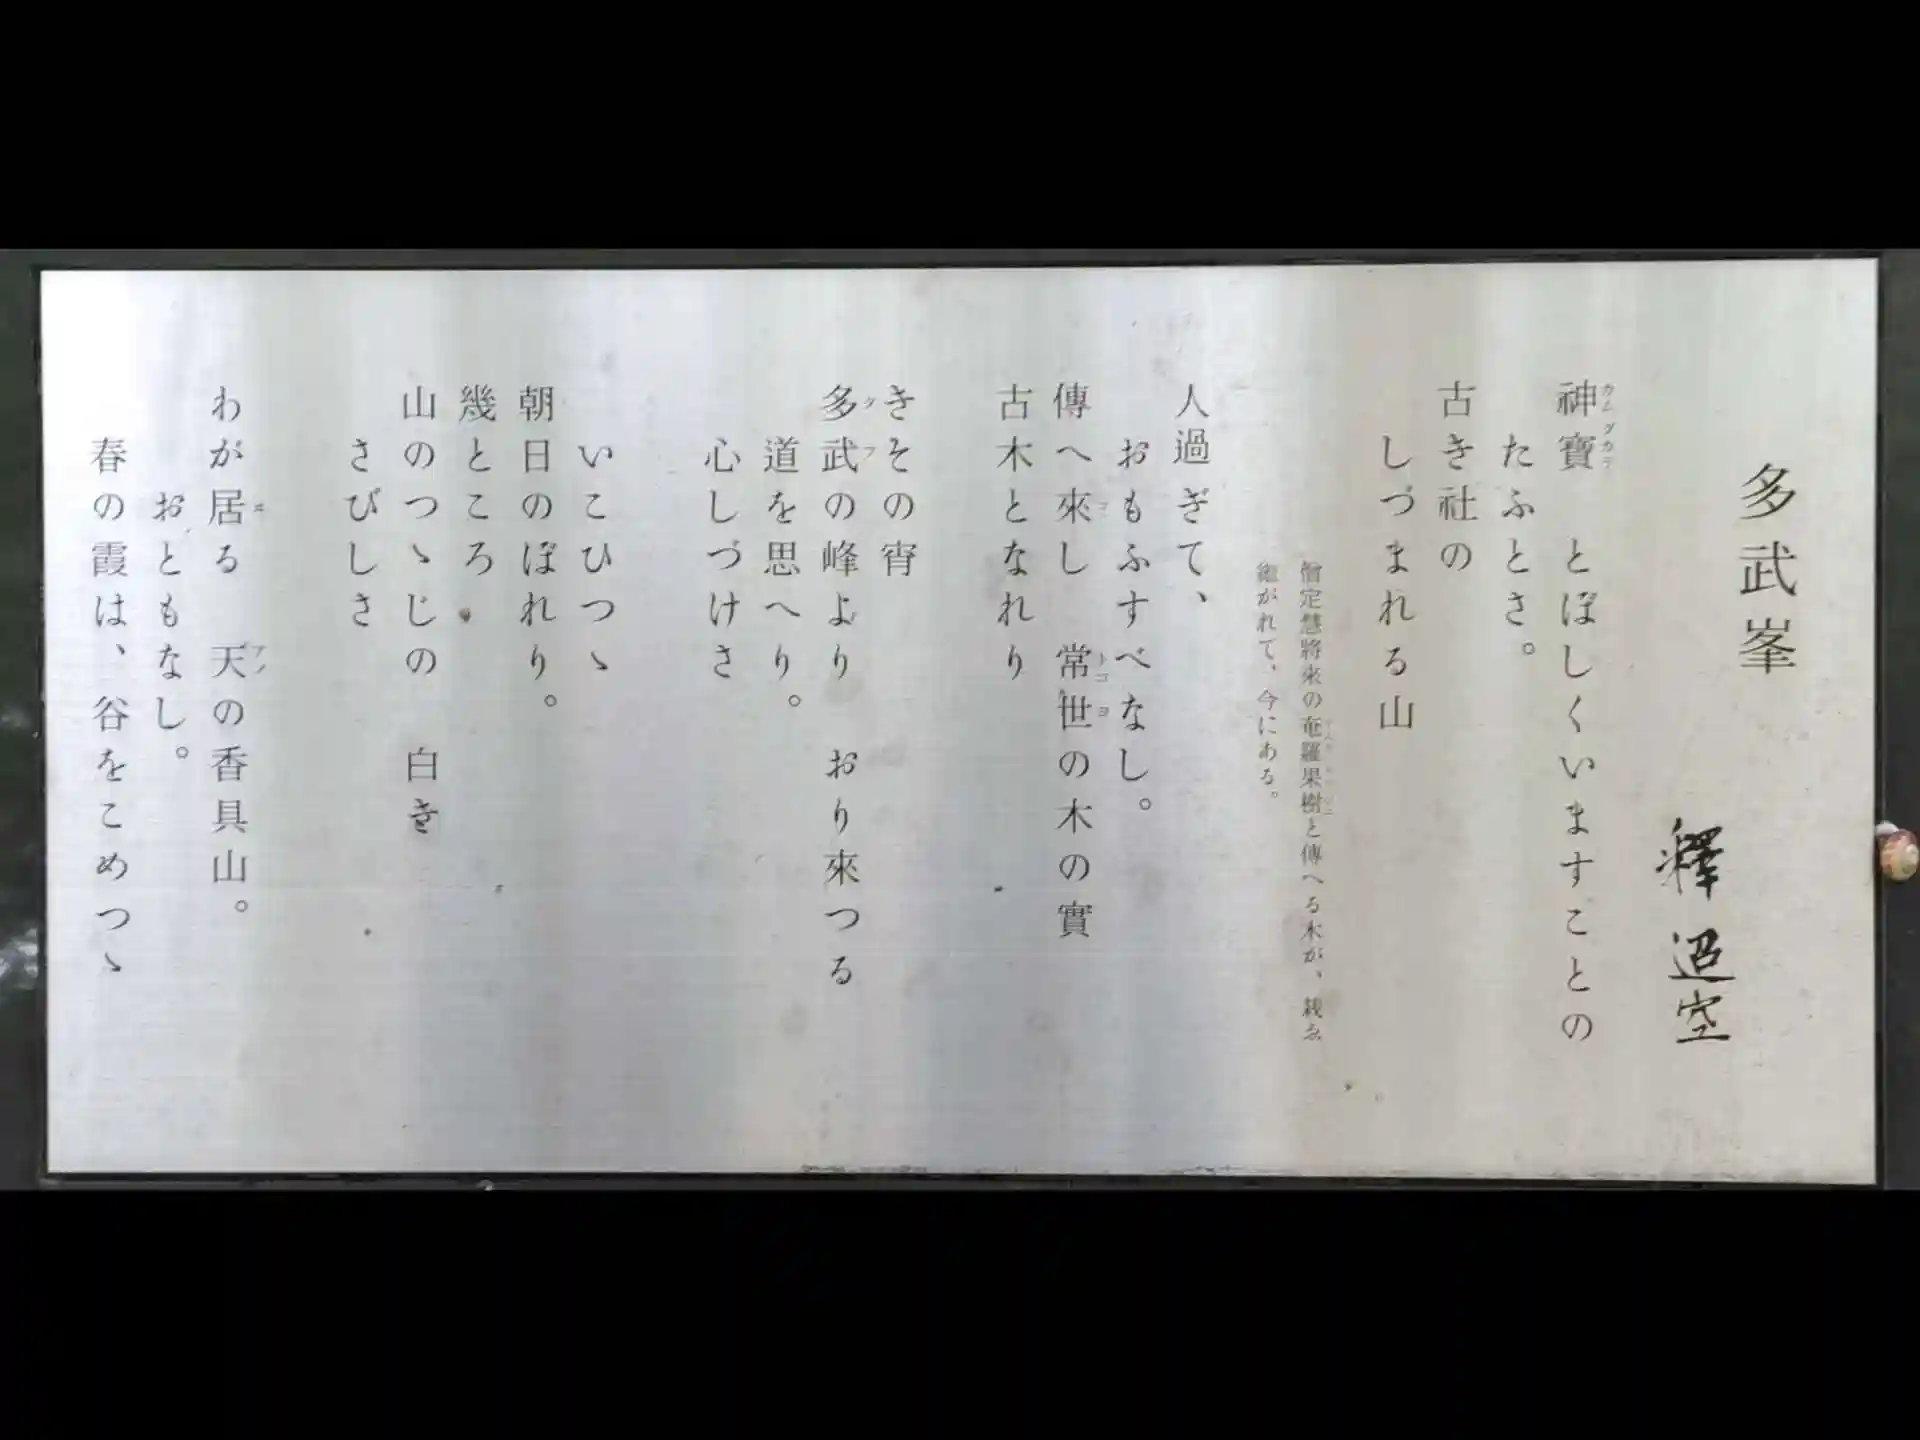 多武峯
釋迢空
神寶　とぼしくいますことの
たふとさ。
古き社の
しづまれる山
僧定慧將來の菴羅果樹と傳へる木が、栽ゑ
繼がれて、今にある。
人過ぎて、
おもふすべなし。
傳へ來し　常世の木の實
古木となれり
きその宵
多武の峰より　おり來つる
道を思へり。
心しづけさ
いこひつゝ
朝日のぼれり。
幾ところ
山のつゝじの　白き
さびしさ
わが居る　天の香具山。
おともなし。
春の霞は、谷をこめつゝ